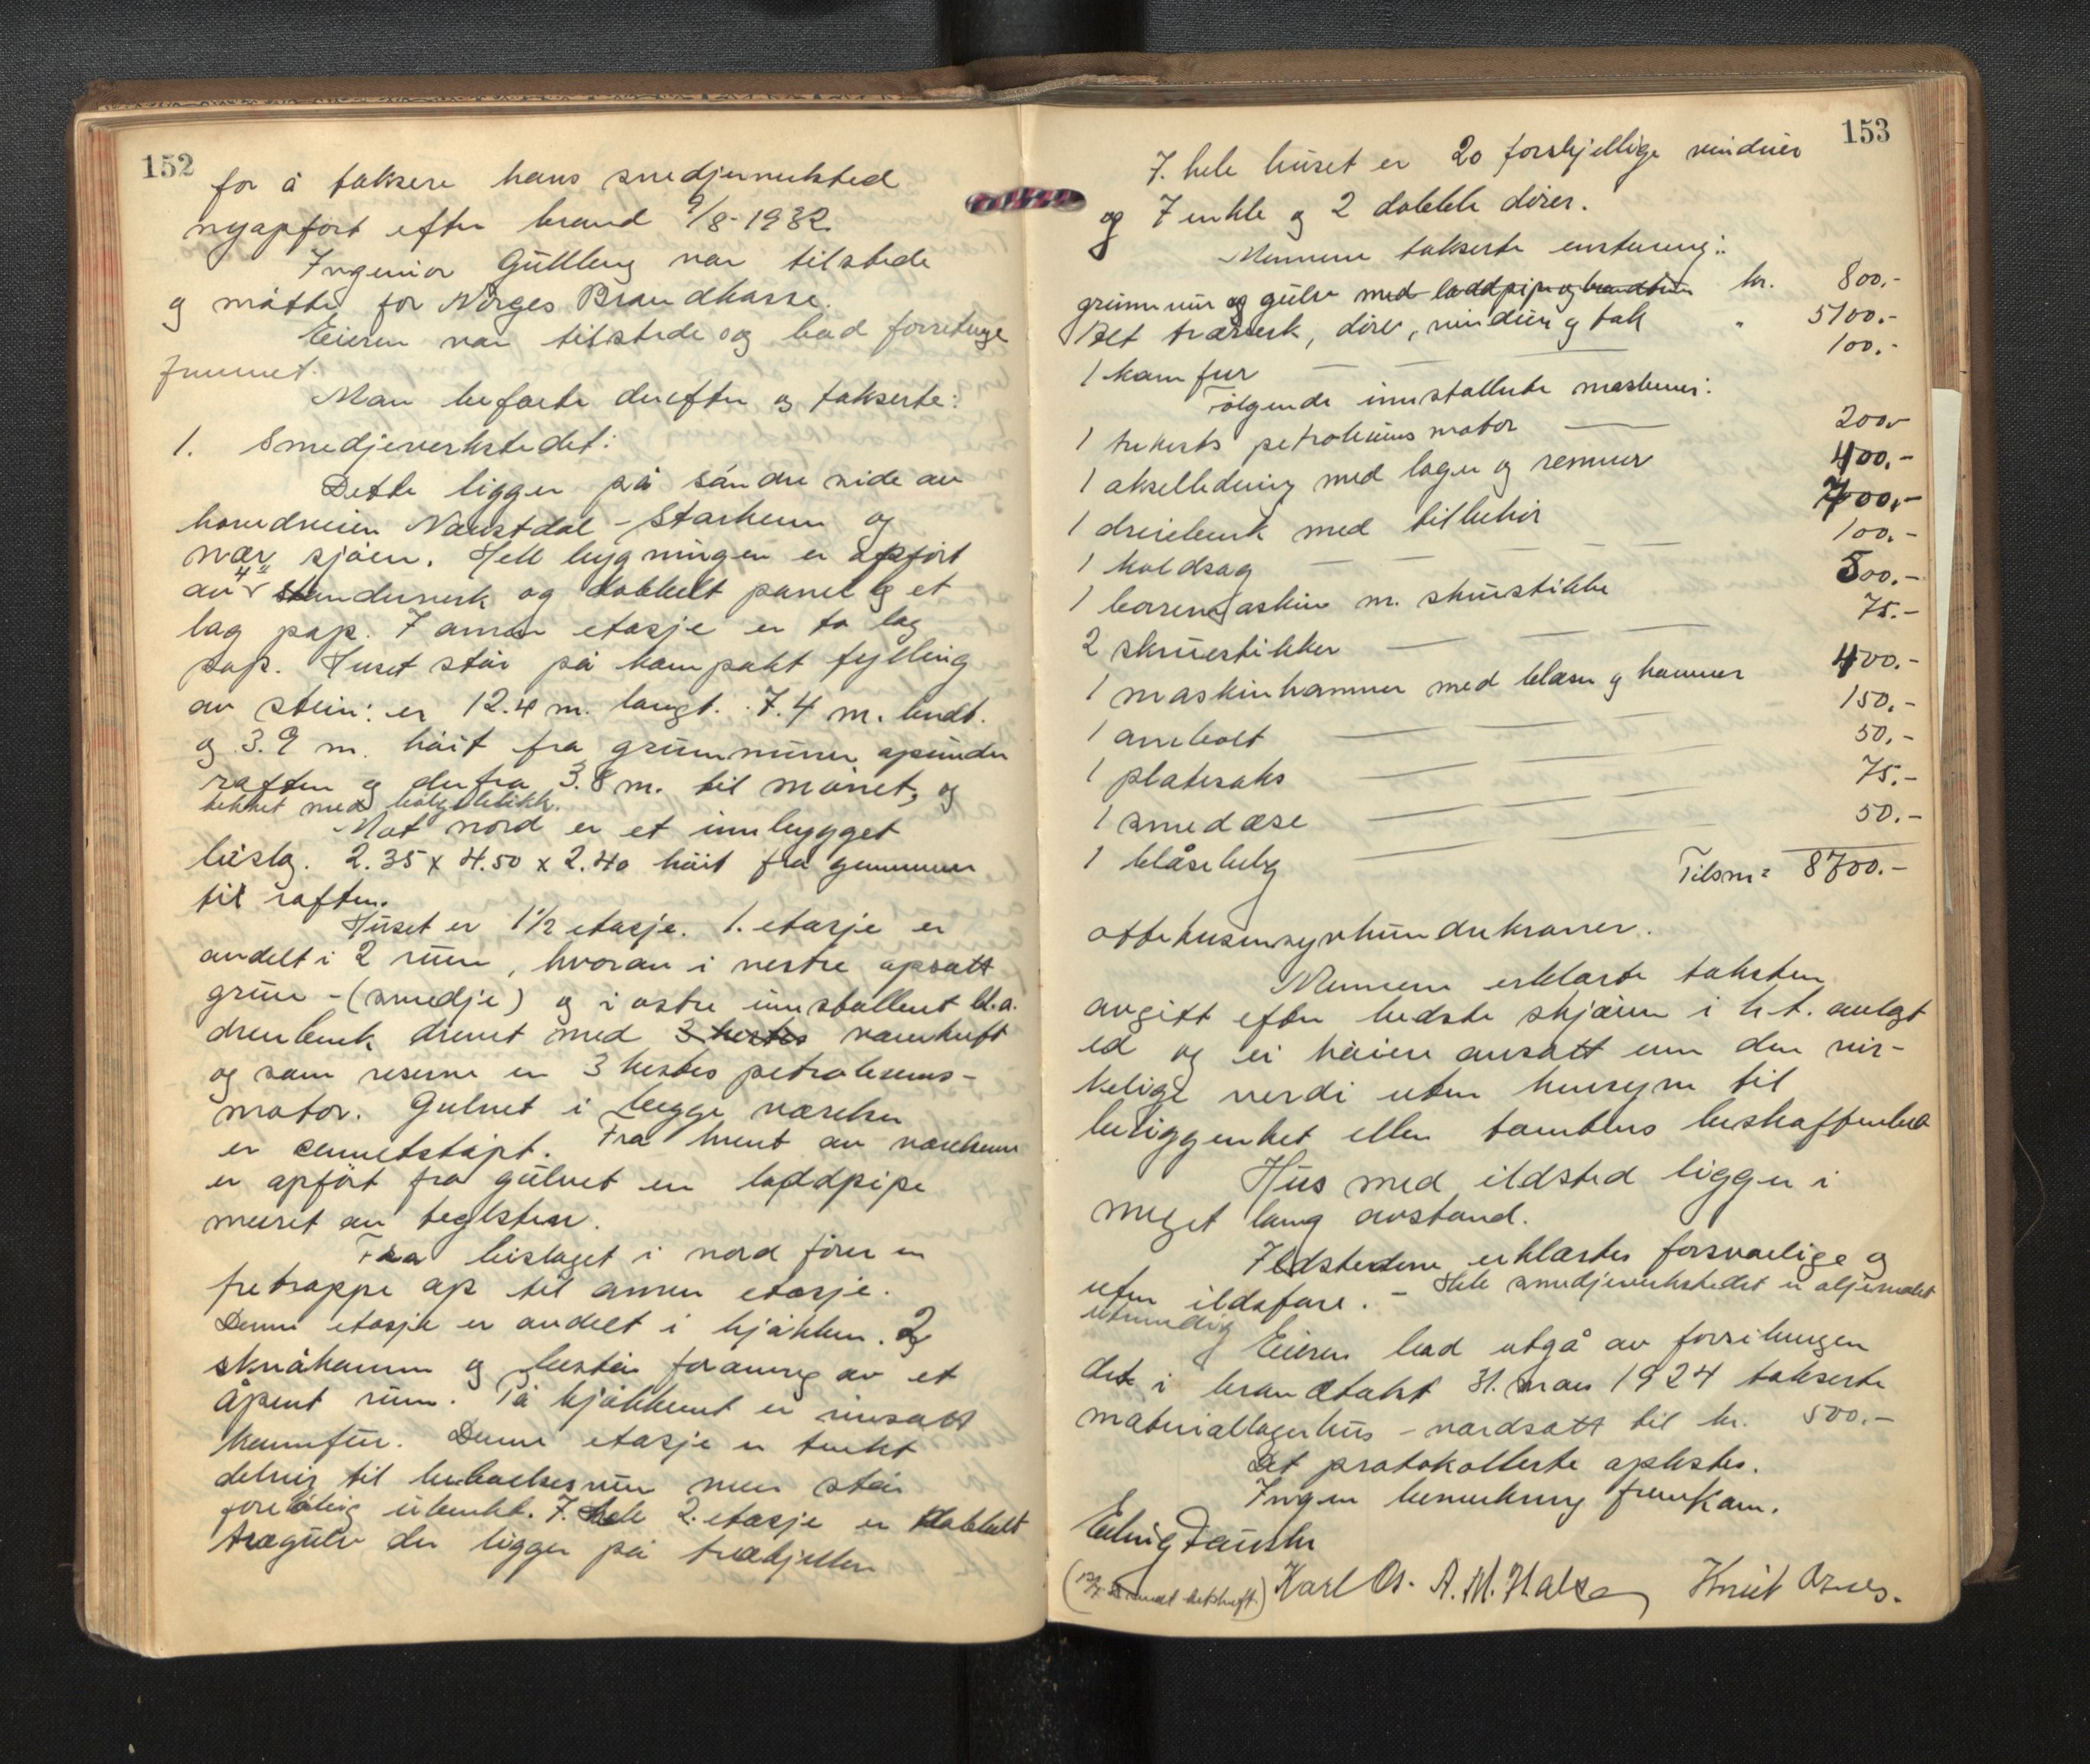 152
for å taksere hans smedjeverksted
nyopført efter brand 9/8-1932.
Ingeniør Gulleng var tilstede
og møtte for Norges Brandkasse.
Eieren var tilstede og bad forretninge
fremmet.
Man befarte derefter og takserte:
1. Smedjeverkstedet:
Dette ligger på søndre side av
hovedveien Naustdal - Starheim og
nær sjøen. Hele bygningen er opført
av 4" standerverk og dobbelt panel og et
lag pap. I annen etasje er to lag
pap. Huset står på kompakt fylling
av stein: er 12.4 m. langt. 7.4 m. bredt.
og 3.9 m. høit fra grunnmuren opunder
raften og derfra 3.8 m. til mønet, og
tekket med bølgeblikk.
Mot nord er et innbygget
bislag. 2.35 x 4.50 x 2.40 høit fra grunnmuren
til raften.
Huset er 1 1/2 etasje. 1. etasje er
avdelt i 2 rum, hvorav i vestre opsatt
grue - (smedje) og i østre innstallert bl.a.
dreiebenk drevet med 3 hestes vannkraft
og som reserve en 3 hestes petroleums-
motor. Gulvet i begge værelser
er cementstøpt. Fra hvert av værelsene
er opført fra gulvet en loddpipe
muret av teglsten.
Fra bislaget i nord fører en
tretrappe op til annen etasje.
Denne etasje er avdelt i kjøkken. 2
skråkammer og består forøvrig av et
åpent rum. På kjøkkenet er innsatt
komfur. Denne etasje er tenkt
delvis til beboelsesrum men står
foreløbig ubenyttet. I hele 2. etasje er dobbelt
trægulv der ligger på træbjelker
153
I hele huset er 20 forskjellige vinduer
og 7 enkle og 2 dobble dører.
Mennene takserte enstemmig:
grunnmur og gulv med loddpipe og brandmur kr. 800.-
Alt træverk, dører, vinduer og tak " 5100.-
1 komfur — — 100.-
Følgende innstallerte maskiner:
1 trehests petroleumsmotor — 200.-
1 akselledning med lager og remmer 400.-
1 dreiebenk med tilbehør 700.-
1 koldsag — — — — 100.-
1 borremaskin m. skruestikke 500.-
2 skruestikker — — — 75.-
1 maskinhammer med blåser og hammer 400.-
1 ambolt — — — 150.-
1 platesaks — — — 50.-
1 smedæse — — — 75.-
1 blåsebelg — — 50.-
Tilsm = 8700.-
ottetusensyvhundrekroner.
Mennene erklærte taksten
avgitt efter bedste skjønn i h.t. avlagt
ed og ei høiere ansatt enn den vir-
kelige verdi uten hensyn til
beliggenhet eller tomtens beskaffenhet
Hus med ildsted ligger i
meget lang avstand.
Ildstedene erklærtes forsvarlige og
uten ildsfare. - Hele smedjeverkstedet er oljemalet
utvendig
Eieren bad utgå av forretningen
det i brandtakst 31. mars 1924 takserte
materiallagerhus - verdsatt til kr. 500.-
Det protokollerte oplestes.
Ingen bemerkning fremkom.
Karl Os. A. M. Halse Knut